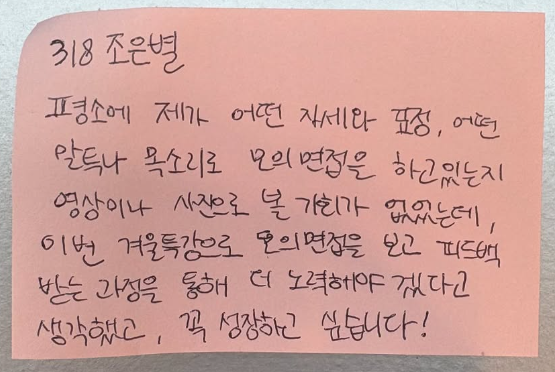 318 조은별
평소에 제가 어떤 자세와 표정, 어떤
말투나 목소리로 모의면접을 하고있는지
영상이나 사진으로 볼 기회가 없었는데,
이번 겨울특강으로 모의면접을 보고 피드백
받는 과정을 통해 더 노력해야 겠다고
생각했고, 꼭 성장하고 싶습니다!